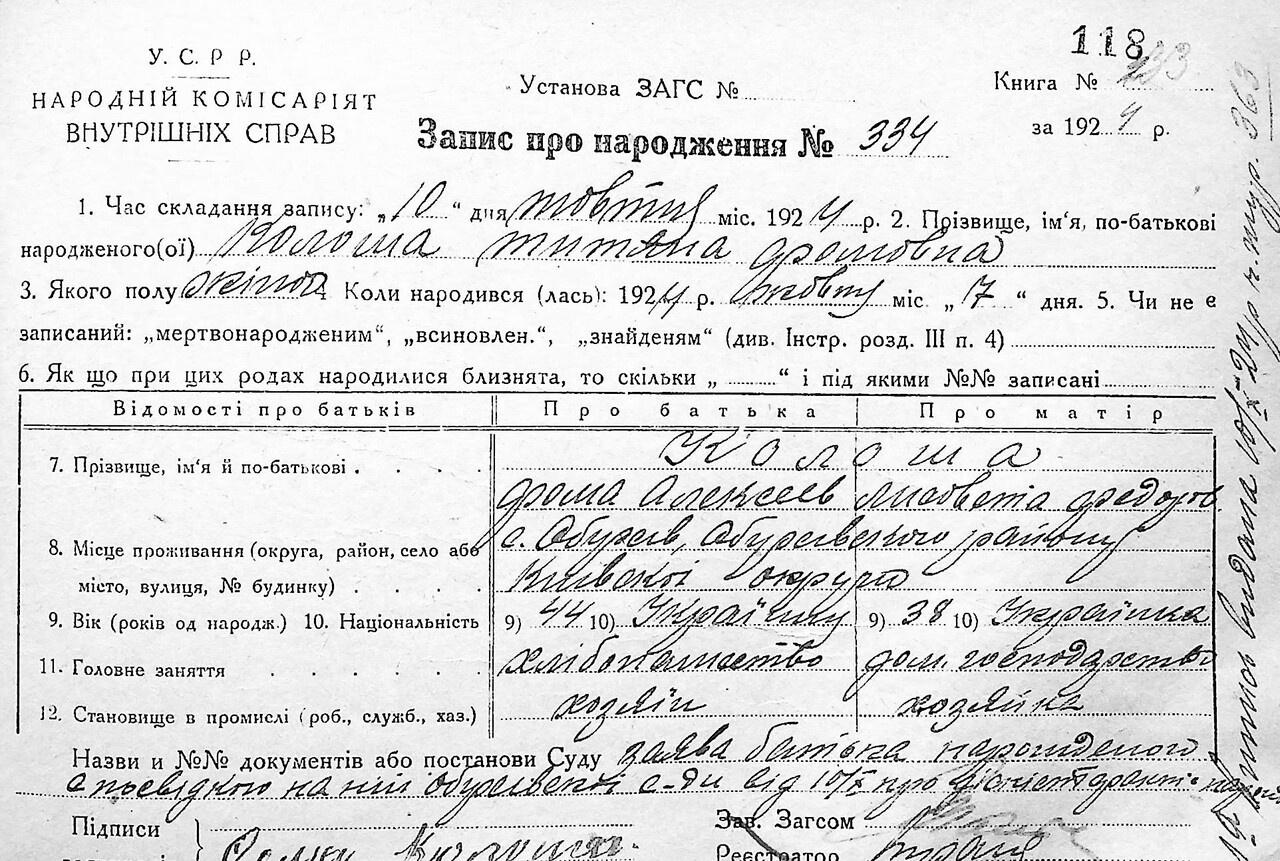 118
У. С. Р Р.
НАРОДНІЙ КОМІСАРІЯТ
ВНУТРІШНІХ СПРАВ
Установа ЗАГС №
Книга № 233
за 1924 р.
Запис про народження № 334
1. Час складання запису: „10“ дня жовтня міс. 1924 р. 2. Прізвище, ім'я, по-батькові
народженого(ої) Колоша Титяна Фромовна
3. Якого полу жіноч. Коли народився (лась): 1924 р. жовтня міс „7“ дня. 5. Чи не є
записаний: „мертвонародженим“, „всиновлен.“, „знайденям“ (див. Інстр. розд. III п. 4)
6. Як що при цих родах народилися близнята, то скільки „ “ і під якими №№ записані
Відомості про батьків Про батька Про матір
7. Прізвище, ім'я й по-батькові . . . . Колоша
Фрома Алексеев Лисовета Федотов.
8. Місце проживання (округа, район, село або с. Обухів, Обухівського району
місто, вулиця, № будинку) . . . . Київскоі округи
9. Вік (років од народж.) 10. Національність 9) 44 10) Українец 9) 38 10) Українка
11. Головне заняття . . . . хлібопашество дом. господарство
12. Становище в промислі (роб., служб., хаз.) хозяїн хозяйка
Назви и №№ документів або постанови Суду заява батька
с посвідкою від 10/X про
Підписи
Зав. Загсом
Реєстратор